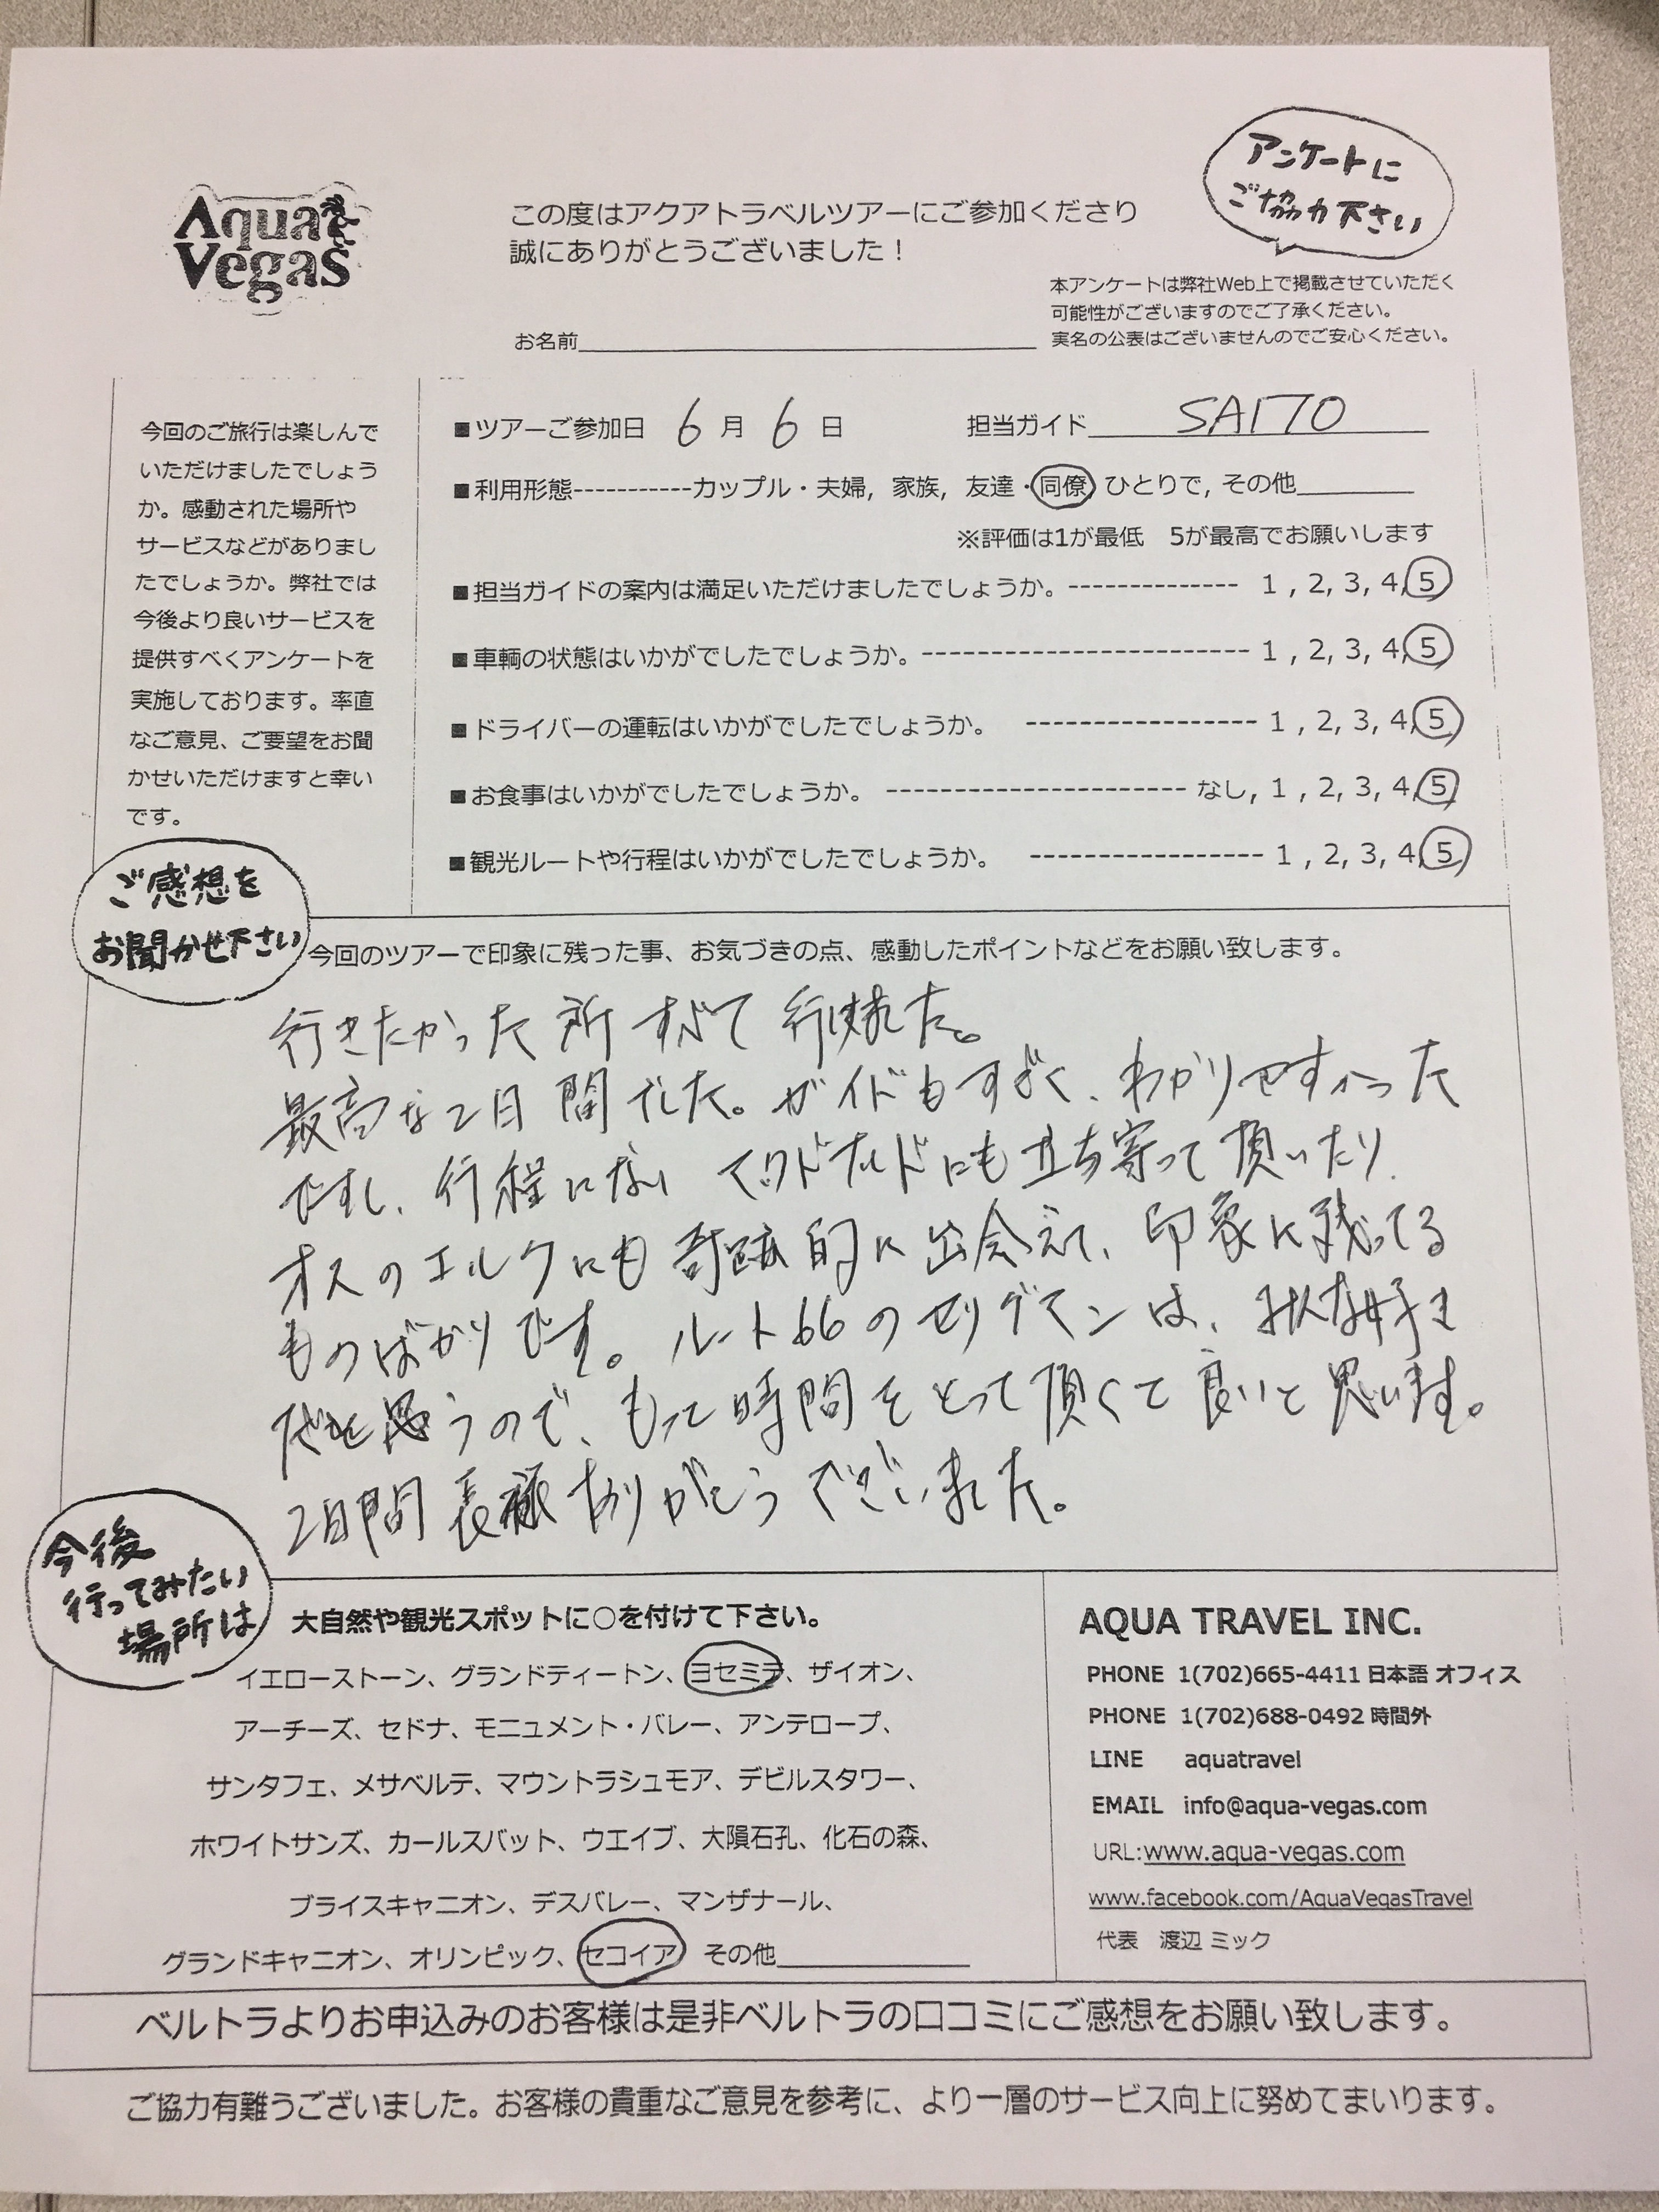 Aqua Vegas
この度はアクアトラベルツアーにご参加くださり
誠にありがとうございました!
アンケートに
ご協力下さい
本アンケートは弊社Web上で掲載させていただく
可能性がございますのでご了承ください。
実名の公表はございませんのでご安心ください。
お名前
今回のご旅行は楽しんで
いただけましたでしょう
か。感動された場所や
サービスなどがありまし
たでしょうか。弊社では
今後より良いサービスを
提供すべくアンケートを
実施しております。率直
なご意見、ご要望をお聞
かせいただけますと幸い
です。
■ツアーご参加日 6月6日 担当ガイド SAITO
■利用形態-----------カップル・夫婦, 家族, 友達・同僚 ひとりで, その他
※評価は1が最低 5が最高でお願いします
■担当ガイドの案内は満足いただけましたでしょうか。------------- 1 , 2, 3, 4, 5
■車輌の状態はいかがでしたでしょうか。------------------------- 1 , 2, 3, 4, 5
■ドライバーの運転はいかがでしたでしょうか。 ----------------- 1 , 2, 3, 4, 5
■お食事はいかがでしたでしょうか。 ---------------------- なし, 1 , 2, 3, 4, 5
■観光ルートや行程はいかがでしたでしょうか。 ----------------- 1 , 2, 3, 4, 5
ご感想を
お聞かせ下さい
今回のツアーで印象に残った事、お気づきの点、感動したポイントなどをお願い致します。
行きたかった所すべて行けました。
最高な2日間でした。ガイドもすごく、わかりやすかった
ですし、行程にないマクドナルドにも立ち寄って頂いたり
オスのエルクにも奇跡的に出会えて、印象に残ってる
ものばかりです。ルート66のセリグマンは、みんな好き
だと思うので、もっと時間をとって頂くて良いと思います。
2日間長様ありがとうございました。
今後
行ってみたい
場所は
大自然や観光スポットに○を付けて下さい。
イエローストーン、グランドティートン、ヨセミテ、ザイオン、
アーチーズ、セドナ、モニュメント・バレー、アンテロープ、
サンタフェ、メサベルテ、マウントラシュモア、デビルスタワー、
ホワイトサンズ、カールスバット、ウエイブ、大隕石孔、化石の森、
ブライスキャニオン、デスバレー、マンザナール、
グランドキャニオン、オリンピック、セコイア その他
AQUA TRAVEL INC.
PHONE 1(702)665-4411 日本語 オフィス
PHONE 1(702)688-0492 時間外
LINE aquatravel
EMAIL info@aqua-vegas.com
URL:www.aqua-vegas.com
www.facebook.com/AquaVegasTravel
代表 渡辺 ミック
ベルトラよりお申込みのお客様は是非ベルトラの口コミにご感想をお願い致します。
ご協力有難うございました。お客様の貴重なご意見を参考に、より一層のサービス向上に努めてまいります。